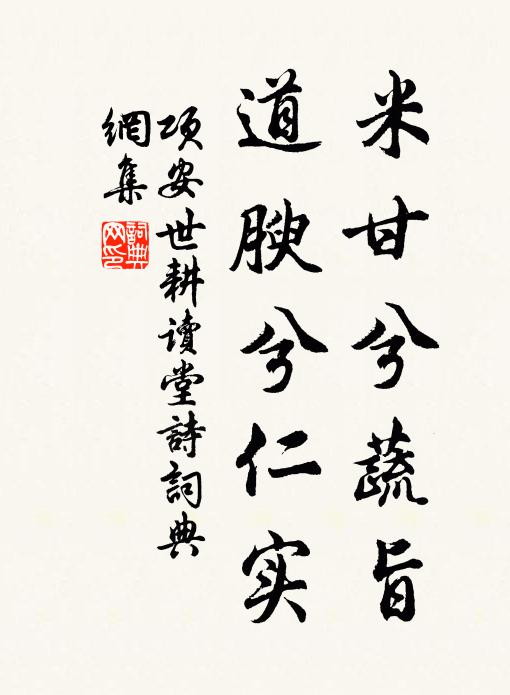 米甘兮蔬旨
道腴兮仁实
项安世耕读堂詩词典
網集
詞典
网印